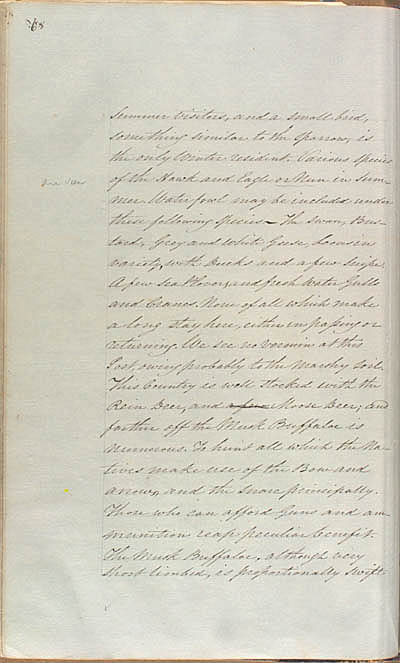 268
Summer visitors, and a small bird,
something similar to the Sparrow, is
the only Winter resident. Various Species
of the Hawk and Eagle are seen in Sum-
mer. Water fowl may be included under
these following Species – The swan, Bus-
tard, Grey and White Geese, Loons in
variety, with Ducks and a few Snipe.
A few sea Plover, and fresh Water Gulls
and Cranes. None of all which make
a long stay here, either in passing or
returning. We see no vermin at this
Post, owing probably to the Marshy Soil.
This Country is well stocked with the
Rein Deer, and a few Moose Deer, and
farther off the Musk Buffaloe is
numerous. To hunt all which the Na-
tives make use of the Bow and
arrow, and the Snare principally.
Those who can afford Guns and am-
munition reap peculiar benefit.
The Musk Buffaloe, although very
short limbed, is proportionally swift